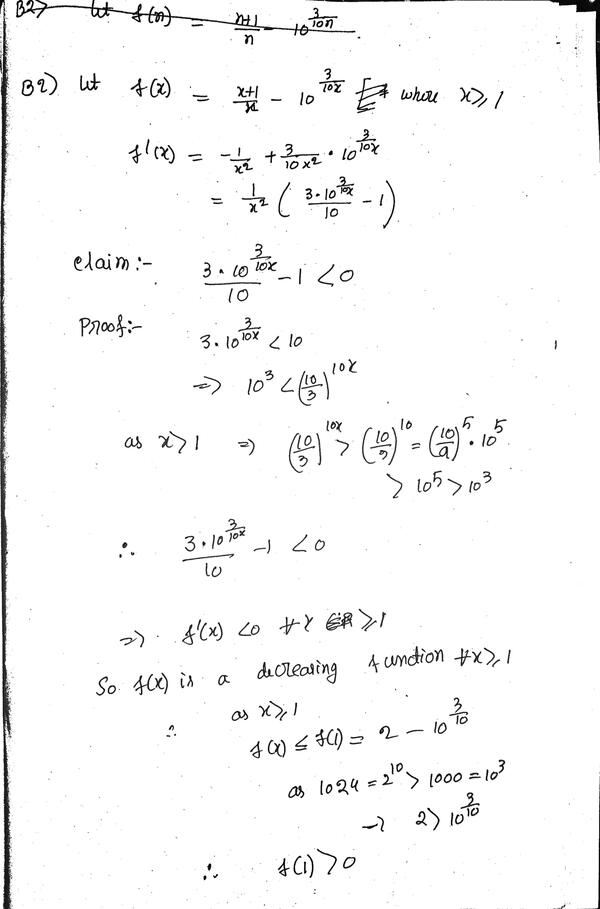 B2) let f(n) = (n+1)/n - 10^(3/10n)
B2) let f(x) = (x+1)/x - 10^(3/10x) where x ≥ 1
f'(x) = -1/x² + 3/(10x²) · 10^(3/10x)
= 1/x² ( (3·10^(3/10x))/10 - 1 )
claim:- (3·10^(3/10x))/10 - 1 < 0
Proof:- 3·10^(3/10x) < 10
=> 10³ < (10/3)^(10x)
as x ≥ 1 => (10/3)^(10x) > (10/3)^10 = (10/9)^5 · 10^5
> 10^5 > 10³
∴ (3·10^(3/10x))/10 - 1 < 0
=> f'(x) < 0 ∀ x ≥ 1
So f(x) is a decreasing function ∀x ≥ 1
∴ as x ≥ 1
f(x) ≤ f(1) = 2 - 10^(3/10)
as 1024 = 2^10 > 1000 = 10³
→ 2 > 10^(3/10)
∴ f(1) > 0